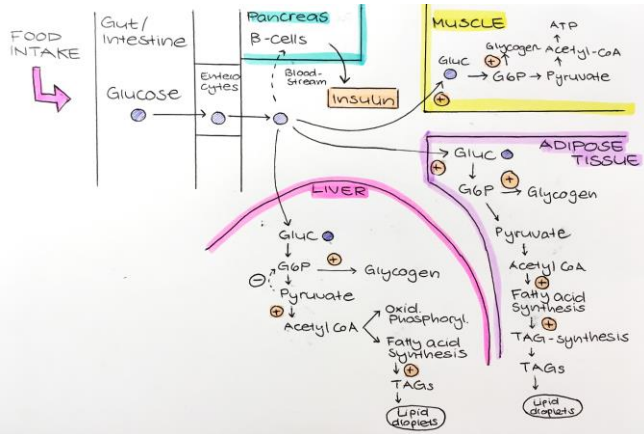 FOOD
INTAKE
Gut/
Intestine
Glucose
Entero
cytes
Pancreas
β-cells
Blood-
stream
Insulin
MUSCLE
ATP
Glycogen
Acetyl-CoA
Gluc
G6P
Pyruvate
+
+
ADIPOSE
TISSUE
Gluc
+
+
G6P
Glycogen
Pyruvate
Acetyl CoA
+
Fatty acid
Synthesis
+
TAG-synthesis
TAGs
Lipid
droplets
LIVER
Gluc
+
G6P
Glycogen
−
Pyruvate
+
Acetyl CoA
Oxid.
Phosphoryl.
Fatty acid
Synthesis
+
TAGs
Lipid
droplets